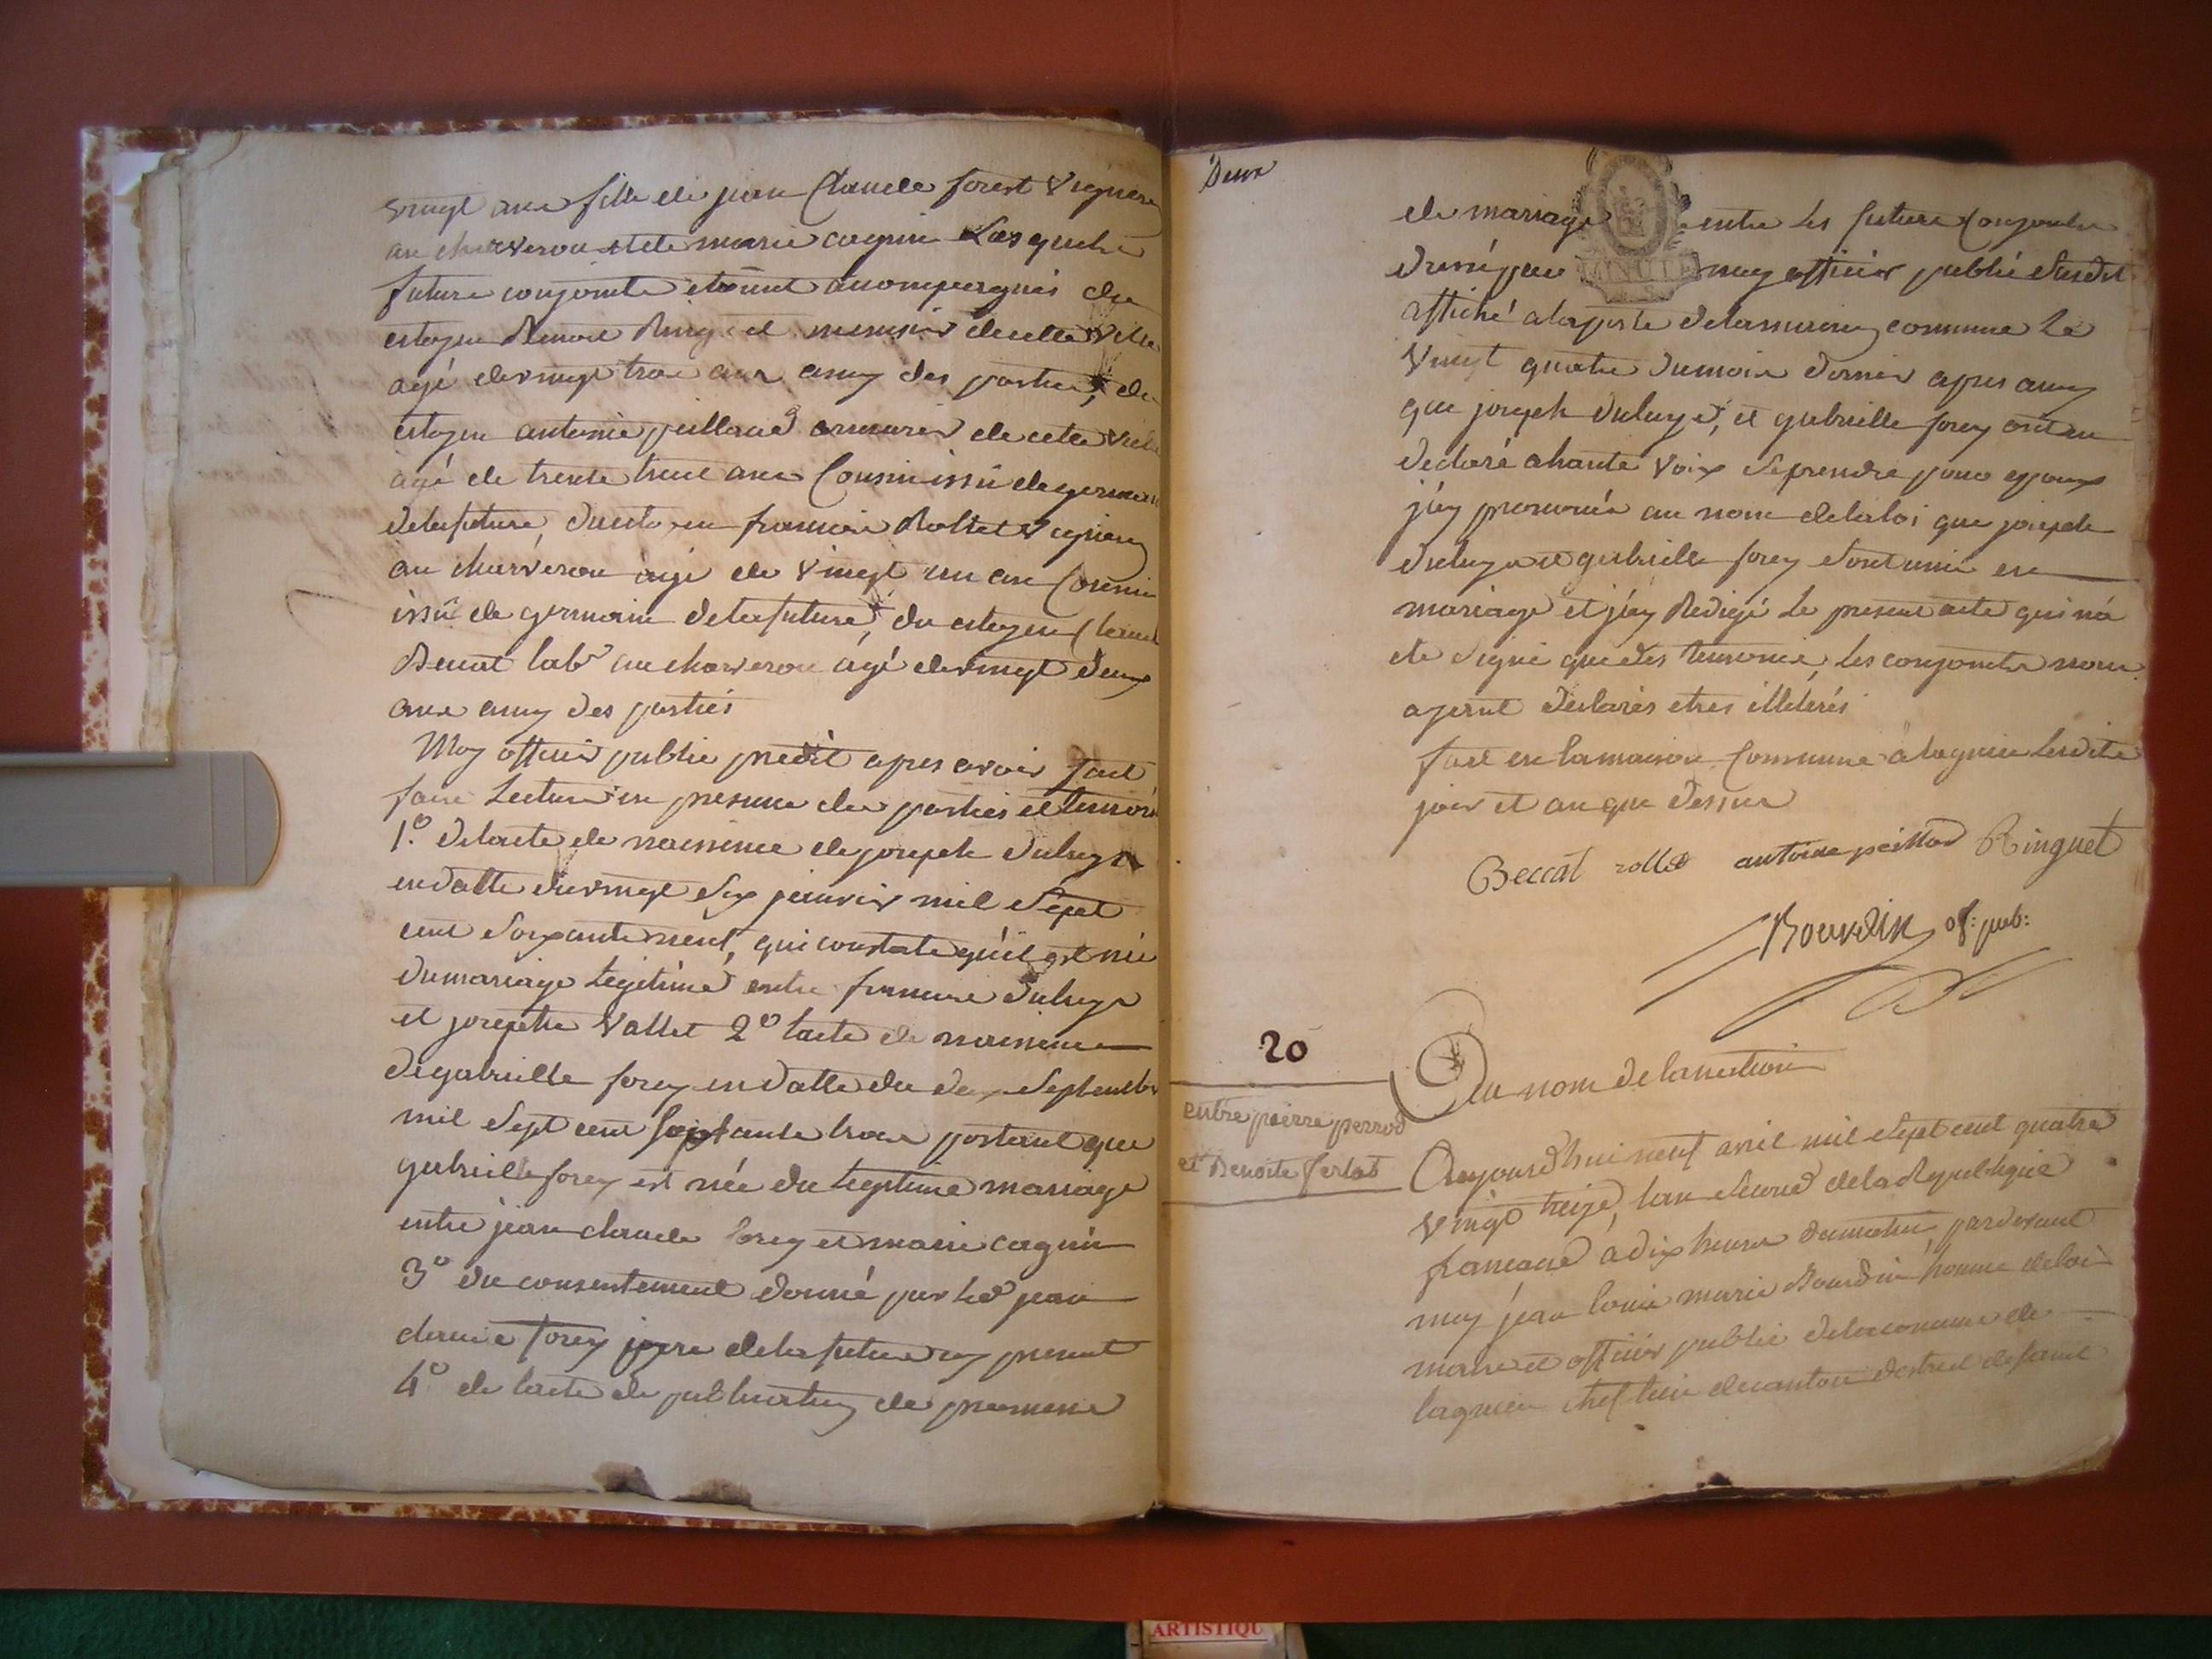 vingt ans fille de jean Claude forest vigneron
au charveron et de marie cagnin Lesquels
futurs conjoints étoient accompagnés du
citoyen Benoit Ringuet menusier de cette ville
agé de vingt trois ans amy des parties, du
citoyen antoine peillard armurier de cette ville
agé de trente trois ans Cousin issû de germain
de la future, du citoyen francois Rollet vigneron
au charveron agé de vingt un an Cousin
issû de germain de la future, du citoyen Claude
Beccat labr au charveron agé de vingt deux
ans amy des parties
Moy officier public predit apres avoir fait
faire Lecture en presence des parties et temoins
1o de lacte de naissance de joseph
en datte du vingt six janvier mil sept
cent soixante neuf, qui constate quil est né
du mariage legitime entre francois
et josephe Vallet 2o lacte de naissance
de gabrielle forey en datte du deux septembre
mil sept cent septante trois portant que
gabrielle forey est née du legitime mariage
entre jean claude forey et marie cagnin
3o du consentement donné par led jean
claude forey pere de la future cy present
4o de lacte de publication de promesse
Deux
de mariage entre les futurs Conjoints
dressé par MINUTE moy officier public susdit
affiché a la porte de la maison commune le
vingt quatre du mois dernier apres aussy
que joseph et gabrielle forey ont eu
declaré a haute voix se prendre pour epoux
j'ay prononcé au nom de la loi que joseph
et gabrielle forey sont unis en
mariage et j'ay Redigé le present acte qui n'a
ete signé que des temoins, les conjoints nous
ayant declarés etres illetérés
fait en la maison Commune a lagnieu lesdits
jour et an que dessus
Beccat rollet antoine peillard Ringuet
Bourdin of: pub:
20
entre pierre perrod
et Benoite ferlat
Au nom de la nation
Aujourdhui neuf avril mil sept cent quatre
vingt treize, l'an second de la Republique
francaise a dix heures du matin, pardevant
moy jean louis marie Bourdin homme de loi
maire et officier public de la commune de
lagnieu chef lieu de canton district de saint
ARTISTIQU